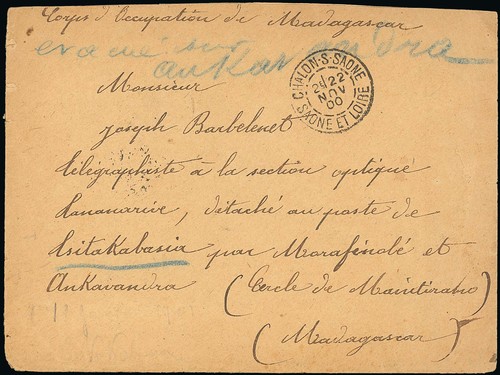 Corps d'Occupation de Madagascar
evacué sur
ankavandra
Monsieur
CHALON-S-SAONE
22
NOV
00
SAONE ET LOIRE
Joseph Barbelenet
télégraphiste à la section optique
Tananarive, détaché au poste de
Tsitakabasia par Morafénobé et
Ankavandra (Cercle de Maintirano)
(Madagascar)